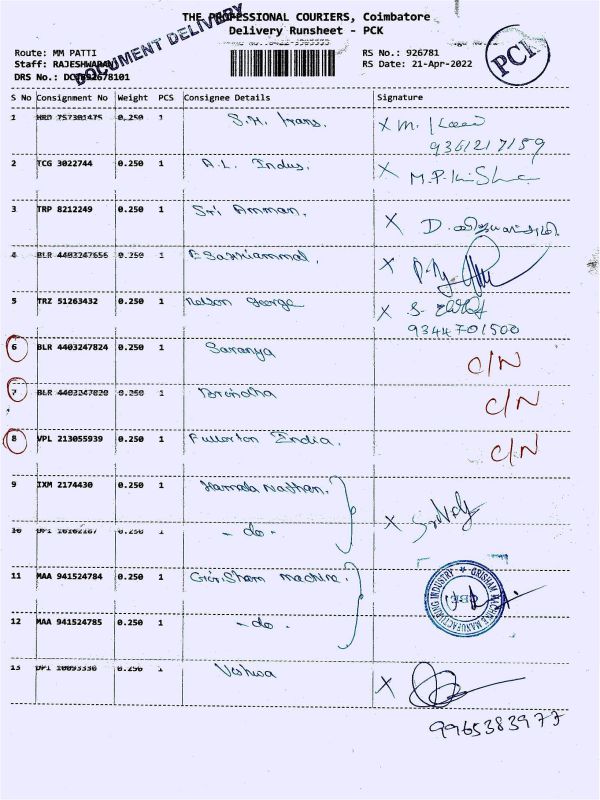 THE PROFESSIONAL COURIERS, Coimbatore
Delivery Runsheet - PCK
DOCUMENT DELIVERY
PCK
Route: MM PATTI
RS No.: 926781
Staff: RAJESHWARAN
RS Date: 21-Apr-2022
DRS No.:
S No Consignment No Weight PCS Consignee Details Signature
1 HRD 757301475 0.250 1 S.H. Trans. X M.
9361217159
2 TCG 3022744 0.250 1 A.L. Indus. X M.P.
3 TRP 8212249 0.250 1 Sri Amman. X D.
4 BLR 4403247656 0.250 1 X
5 TRZ 51263432 0.250 1 Nelson George X S.
9344701500
6 BLR 4403247824 0.250 1 Saranya C/N
7 BLR 4403247820 0.250 1 Brindha C/N
8 VPL 213055939 0.250 1 Fullerton India. C/N
9 IXM 2174430 0.250 1 Kamala Nathan. X
10 0.250 1 - do -
11 MAA 941524784 0.250 1 Gri Sham Machine.
GRISHAM MACHINE MANUFACTURING INDUSTRY
12 MAA 941524785 0.250 1 - do -
13 0.250 1 Vishwa X
9965383977